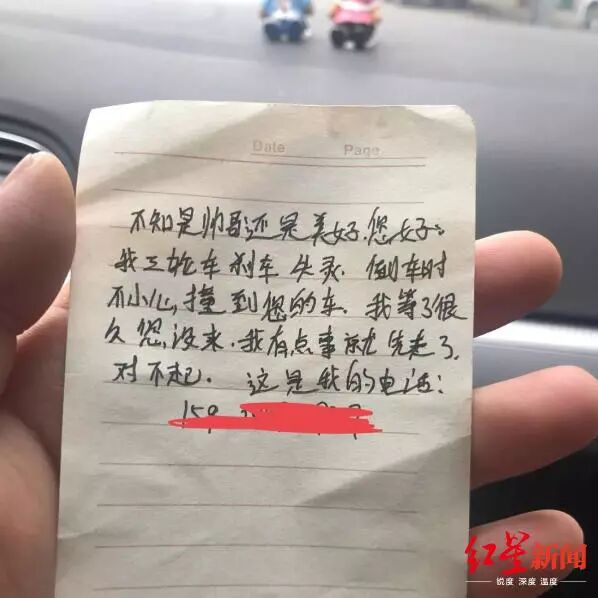 Date Page
不知是帅哥还是美好.您好:
我三轮车刹车失灵.倒车时
不小心,撞到您的车.我等了很
久您没来.我有点事就先走了.
对不起. 这是我的电话:
159
红星新闻
锐度 深度 温度